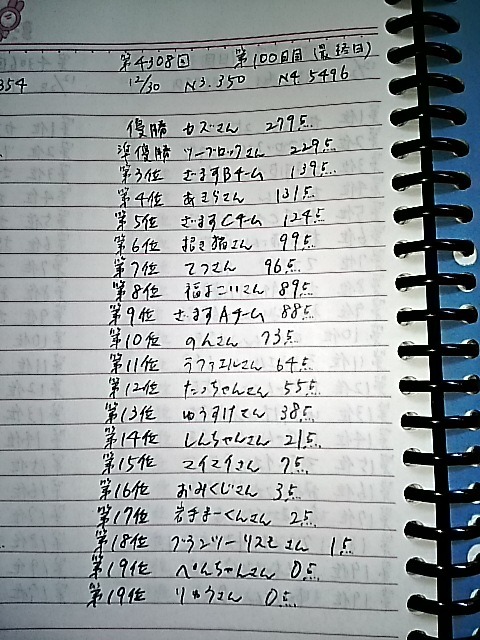 第4308回 第100回目(最終日)
354 12/30 N3.350 N4.5496
優勝 カズさん 279点
準優勝 ツーブロックさん 229点
第3位 ざますBチーム 139点
第4位 あきらさん 131点
第5位 ざますCチーム 124点
第6位 招き猫さん 99点
第7位 てつさん 96点
第8位 福よこいさん 89点
第9位 ざますAチーム 88点
第10位 のんさん 73点
第11位 ラファエルさん 64点
第12位 たっちゃんさん 55点
第13位 ゆうすけさん 38点
第14位 しんちゃんさん 21点
第15位 マイマイさん 7点
第16位 おみくじさん 3点
第17位 岩きまーくんさん 2点
第18位 さん 1点
第19位 ぺんちゃんさん 0点
第19位 りゅうさん 0点